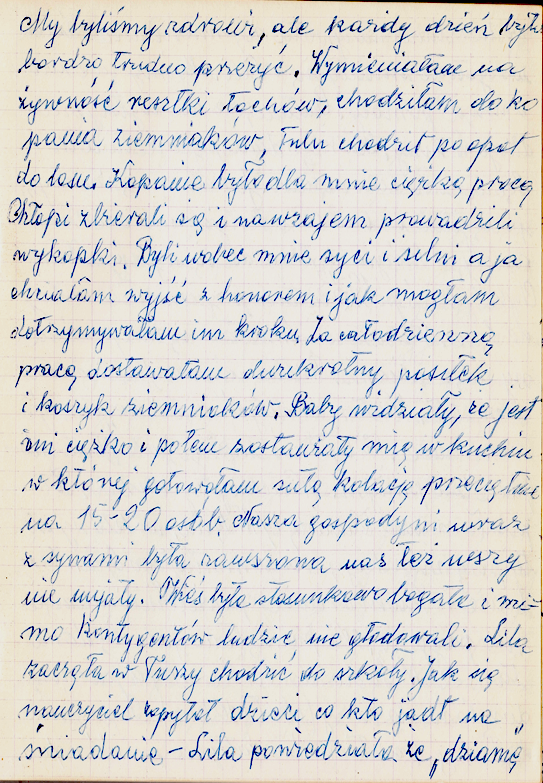 My byliśmy zdrowi, ale każdy dzień było
bardzo trudno przeżyć. Wymieniałam na
żywność resztki łachów, chodziłam do ko
pania ziemniaków, Lulu chodził po opał
do lasu. Kopanie było dla mnie ciężką pracą
Chłopi zbierali się i nawzajem prowadzili
wykopki. Byli wobec mnie syci i silni a ja
chciałam wyjść z honorem i jak mogłam
dotrzymywałam im kroku. Za całodzienną
pracę dostawałam dwukrotny posiłek
i koszyk ziemniaków. Baby widziały, że jest
mi ciężko i potem zostawiały mię w kuchni
w której gotowałam sutą kolację przeciętnie
na 15-20 osób. Nasza gospodyni wraz
z synami była zawszona nas też wszy
nie mijały. Wieś była stosunkowo bogata i mi-
mo kontygentów ludzie nie głodowali. Lila
zaczęła w Tuszy chodzić do szkoły. Jak się
nauczyciel zapytał dzieci co kto jadł na
śniadanie – Lila powiedziała że „dziamę"